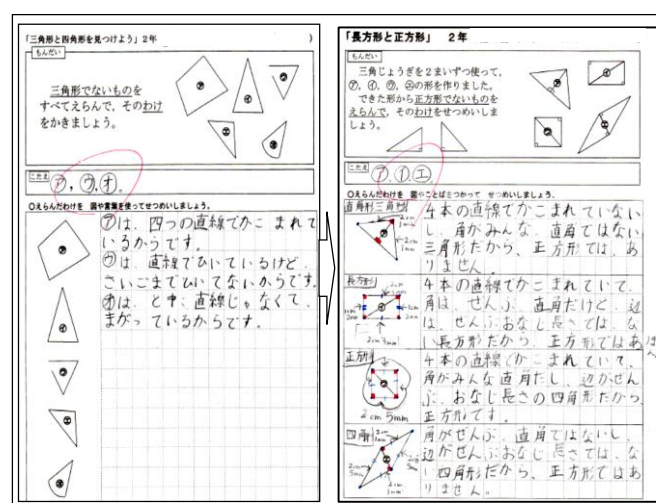 「三角形と四角形を見つけよう」2年
)
もんだい
三角形でないものを
すべてえらんで、そのわけ
をかきましょう。
㋐
㋑
㋒
㋓
㋔
こたえ
㋐, ㋒, ㋔。
○えらんだわけを 図や言葉を使ってせつめいしましょう。
㋐は、四つの直線でかこまれて
いるからです。
㋒は、直線でひいているけど、
さいごまでひいてないからです。
㋔は、と中、直線じゃなくて、
まがっているからです。
㋐
㋑
㋒
㋓
㋔
「長方形と正方形」 2年
もんだい
三角じょうぎを2まいずつ使って、
㋐, ㋑, ㋒, ㋓の形を作りました。
できた形から正方形でないものを
えらんで、そのわけをせつめいしま
しょう。
㋐
㋑
㋒
㋓
こたえ
㋐ ㋑ ㋓
○えらんだわけを 図やことばをつかって せつめいしましょう。
直角形三角形
4本の直線でかこまれていない
し、角がみんな、直角ではない
三角形だから、正方形では、あ
りません。
長方形
4本の直線でかこまれていて、
角は、ぜんぶ、直角だけど、辺
は、ぜんぶおなじ長さでは、な
い長方形だから、正方形ではあ
正方形
4本の直線でかこまれていて、
角がみんな直角だし、辺がぜん
ぶ、おなじ長さの四角形だから、
正方形です。
2cm5mm
四角形
角がぜんぶ、直角ではないし、
辺がぜんぶおなじ長さでは、な
い四角形だから、正方形ではあ
りません。